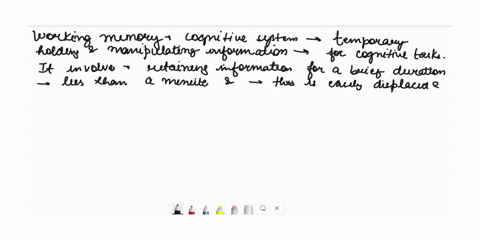 Working memory → cognitive system → temporary
holding & manipulating information → for cognitive tasks.
It involve → retaining information for a brief duration
→ less than a minute & → this is easily displaced &